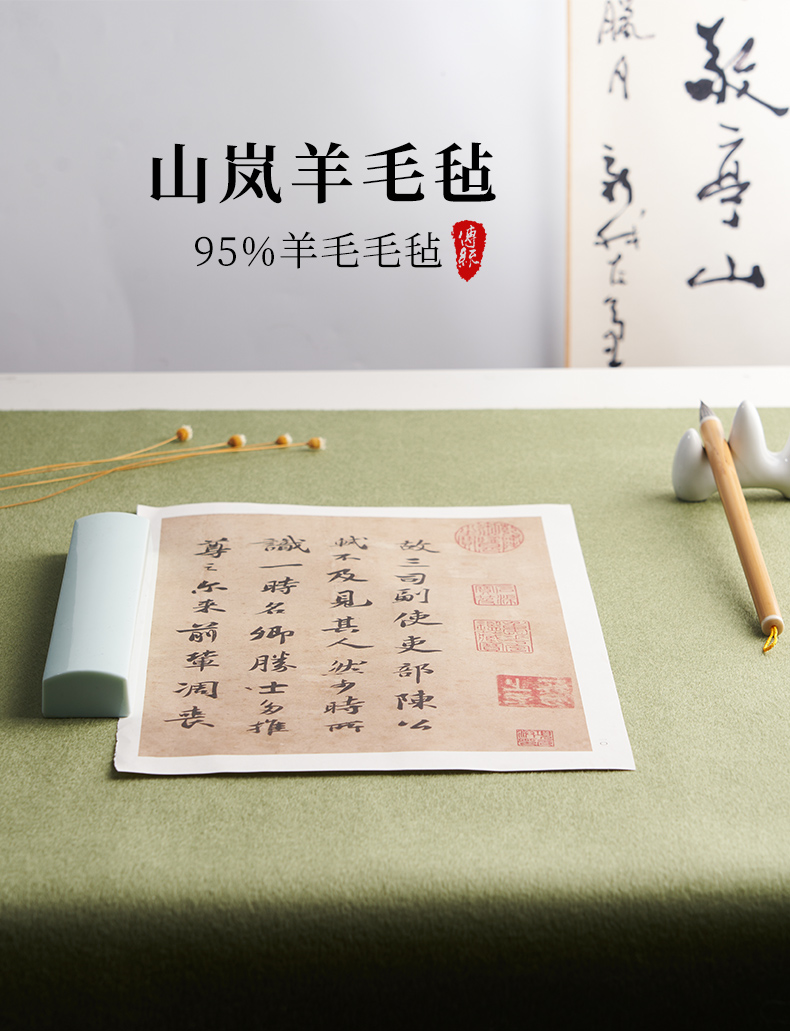 山岚羊毛毡
95%羊毛毛毡
傳統
敬亭山
臘月
故三司副使吏部陳公
軾不及見其人然少時所
識一時名卿勝士多推
尊之尔来前輩凋喪